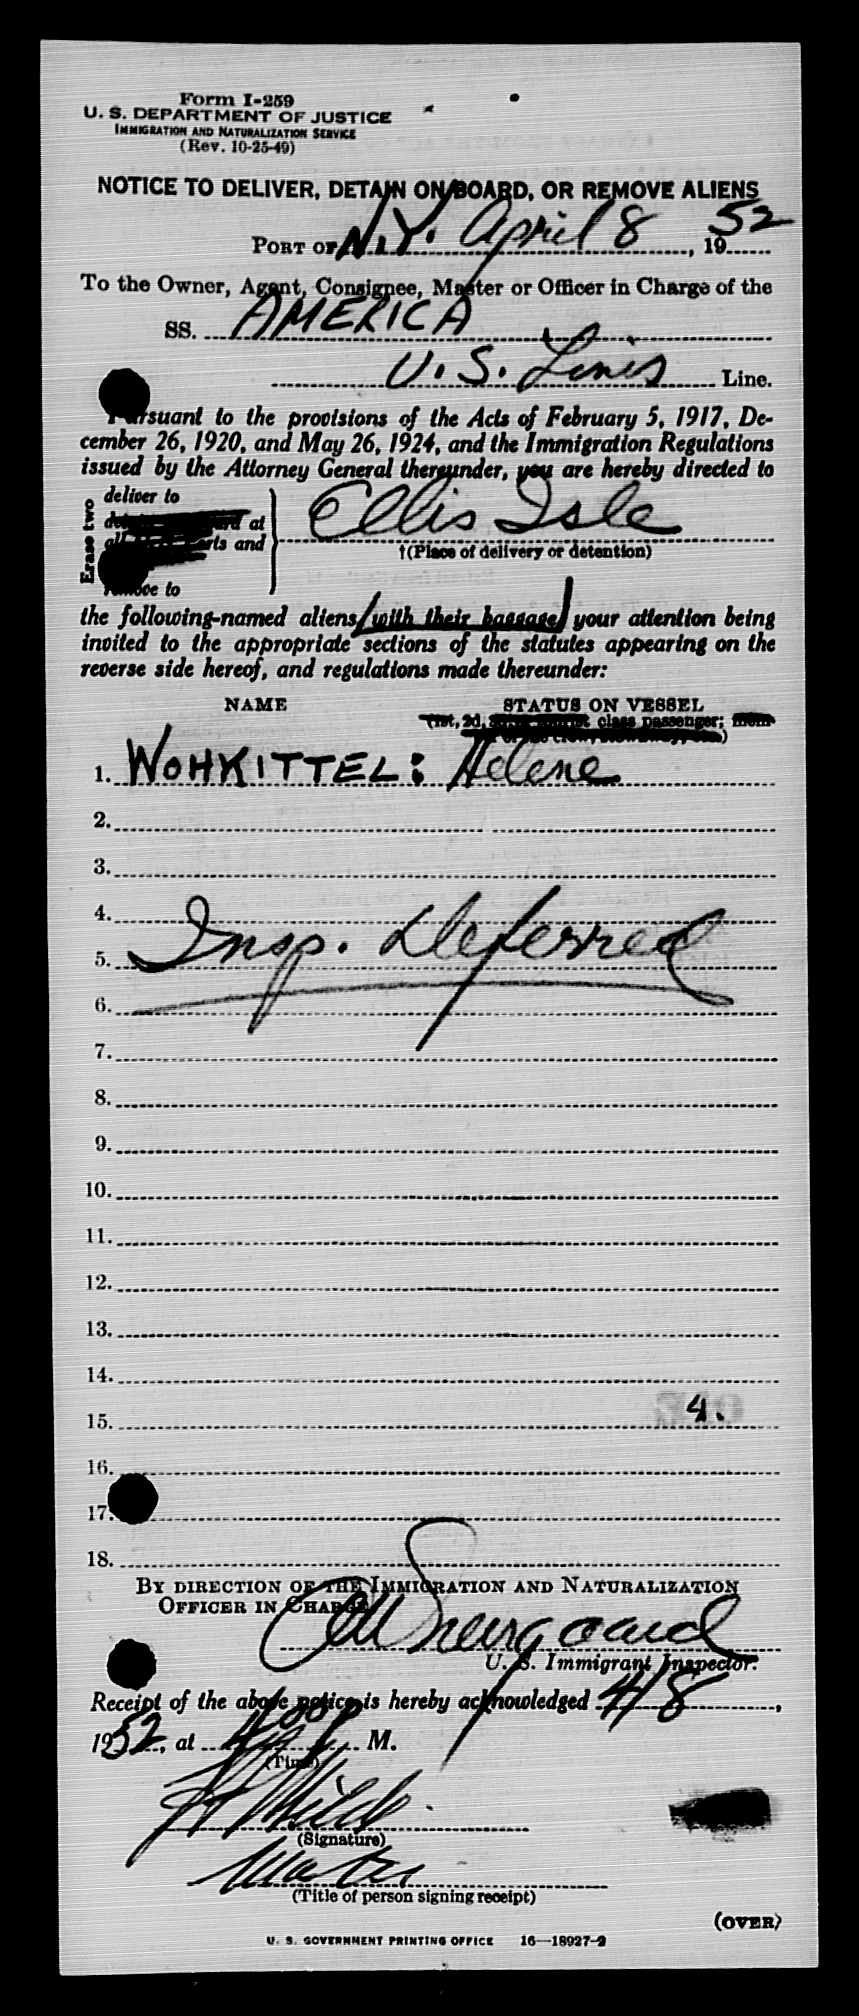 Form I-259
U. S. DEPARTMENT OF JUSTICE
IMMIGRATION AND NATURALIZATION SERVICE
(Rev. 10-25-49)
NOTICE TO DELIVER, DETAIN ON BOARD, OR REMOVE ALIENS
PORT OF N.Y. April 8, 1952
To the Owner, Agent, Consignee, Master or Officer in Charge of the
SS. AMERICA
U.S. Lines Line.
Pursuant to the provisions of the Acts of February 5, 1917, De-
cember 26, 1920, and May 26, 1924, and the Immigration Regulations
issued by the Attorney General thereunder, you are hereby directed to
Erase two
deliver to
at
and
remove to
Ellis Isle
†(Place of delivery or detention)
the following-named aliens (with their baggage) your attention being
invited to the appropriate sections of the statutes appearing on the
reverse side hereof, and regulations made thereunder:
NAME STATUS ON VESSEL
(1st, 2d, class passenger;
1. WOHKITTEL: Helene
2.
3.
4.
Insp. Deferred
5.
6.
7.
8.
9.
10.
11.
12.
13.
14.
4.
15.
16.
17.
18.
BY DIRECTION OF THE IMMIGRATION AND NATURALIZATION
OFFICER IN CHARGE
U. S. Immigrant Inspector.
Receipt of the above notice is hereby acknowledged 4/8,
1952, at M.
(Time)
(Signature)
(Title of person signing receipt)
(OVER)
U. S. GOVERNMENT PRINTING OFFICE 16—18927-2